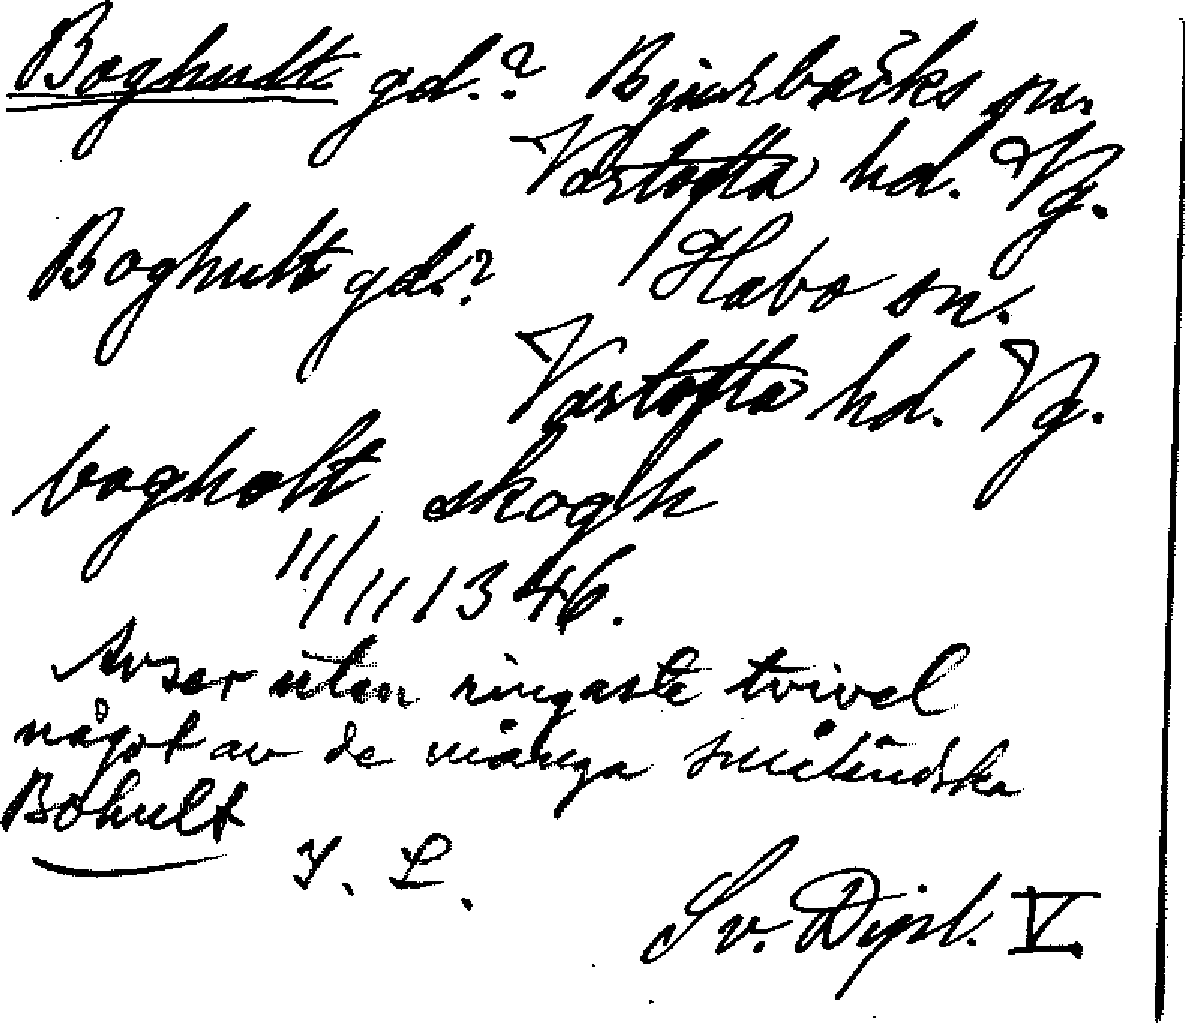 Boghult gd.? Bjurbäcks sn.
Vartofta hd. Vg.
Boghult gd.? Habo sn.
Vartofta hd. Vg.
bogholt skogh
11/11 1346.
Avser utan ringaste tvivel
något av de många småländska
Bohult
I. L.
Sv. Dipl. V.